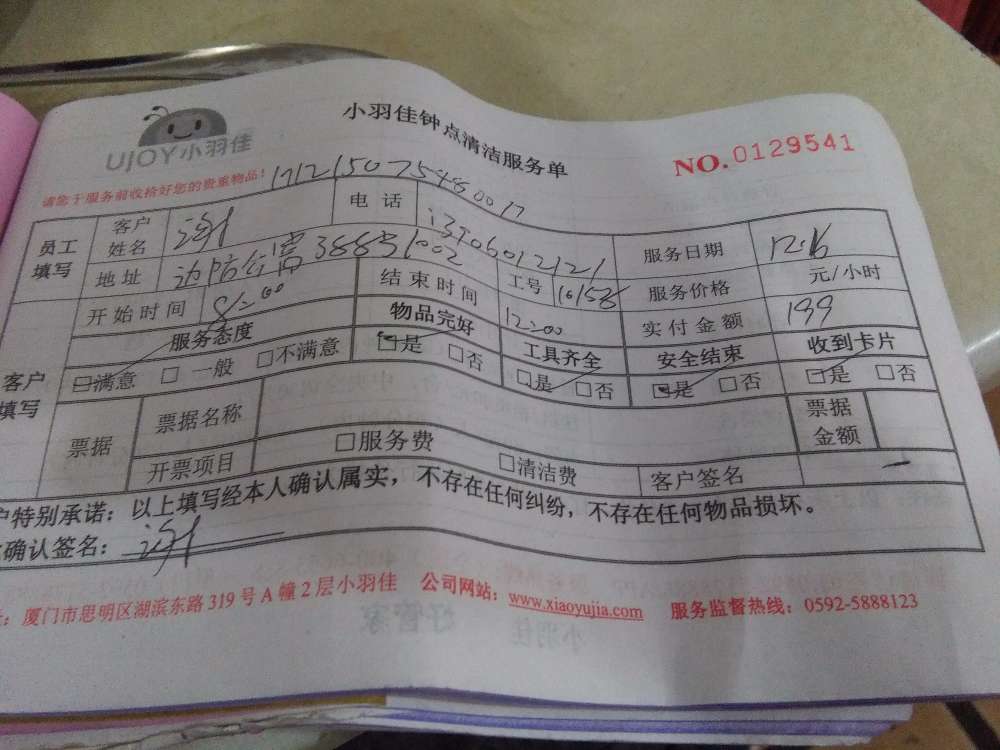 UJOY小羽佳
小羽佳钟点清洁服务单
NO.0129541
请您于服务前收拾好您的贵重物品！
员工填写 客户姓名 电话 服务日期 12.16
地址 工号 服务价格 元/小时
开始时间 8:00 结束时间 12:00 实付金额 199
客户填写 服务态度 物品完好 工具齐全 安全结束 收到卡片
□满意 □一般 □不满意 □是 □否 □是 □否 □是 □否 □是 □否
票据 票据名称 票据金额
开票项目 □服务费 □清洁费 客户签名
户特别承诺：以上填写经本人确认属实，不存在任何纠纷，不存在任何物品损坏。
确认签名：
：厦门市思明区湖滨东路319号A幢2层小羽佳 公司网站：www.xiaoyujia.com 服务监督热线：0592-5888123